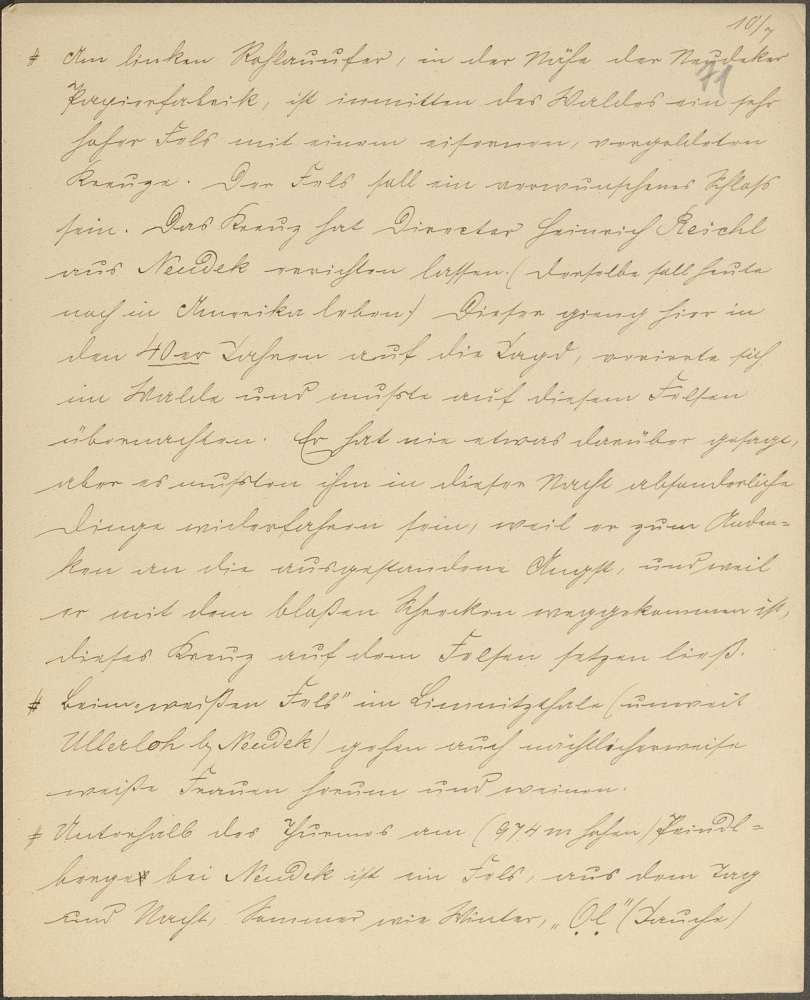 10/7
71
# Am linken Rohlauufer, in der Nähe der Neudeker
Papierfabrik, ist inmitten des Waldes ein sehr
hoher Fels mit einem eisernen, vergoldeten
Kreuze. Der Fels soll ein verwunschenes Schloß
sein. Das Kreuz hat Director Heinrich Reichl
aus Neudek errichten lassen. (Derselbe soll heute
noch in Amerika leben) Dieser gieng hier in
den 40er Jahren auf die Jagd, verirrte sich
im Walde und mußte auf diesem Felsen
übernachten. Er hat nie etwas darüber gesagt,
aber es mußten ihm in dieser Nacht absonderliche
Dinge widerfahren sein, weil er zum Anden=
ken an die ausgestandene Angst, und weil
er mit dem bloßen Schrecken weggekommen ist,
dieses Kreuz auf dem Felsen setzen ließ.
# Beim „weißen Fels" im Limnitzthale (unweit
Ullerloh b/ Neudek) gehen auch nächtlicherweise
weiße Frauen herum und weinen.
# Unterhalb des Thurmes am (974 m hohen) Peindl=
berge bei Neudek ist ein Fels, aus dem Tag
und Nacht, Sommer wie Winter, „Öl" (Jauche)